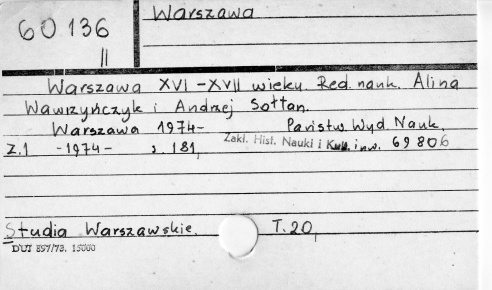 60136
II
Warszawa
Warszawa XVI-XVII wieku. Red. nauk. Alina
Wawrzyńczyk i Andrzej Sołtan.
Warszawa 1974- Państw. Wyd. Nauk.
Z.1 -1974- s. 181, Zakł. Hist. Nauki i inw. 69806
Studia Warszawskie. T. 20,
DUJ 897/73. 15000